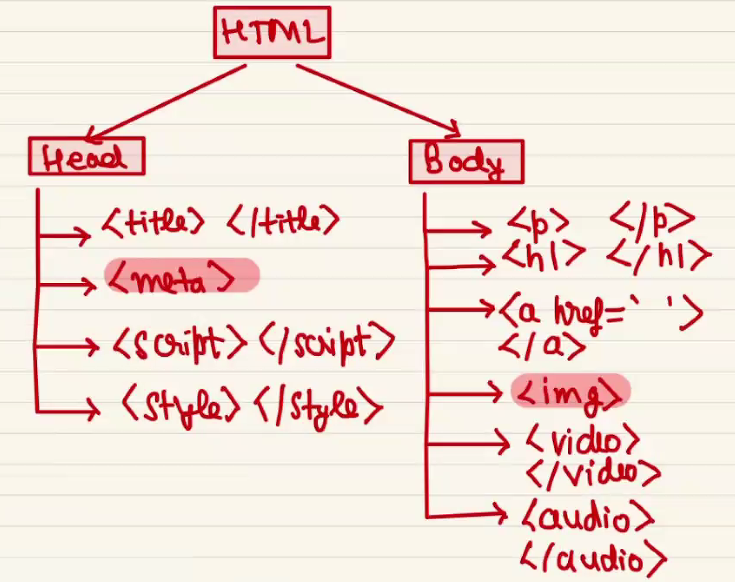 HTML
Head
<title> </title>
<meta>
<script> </script>
<style> </style>
Body
<p> </p>
<h1> </h1>
<a href=` '>
</a>
<img>
<video>
</video>
<audio>
</audio>